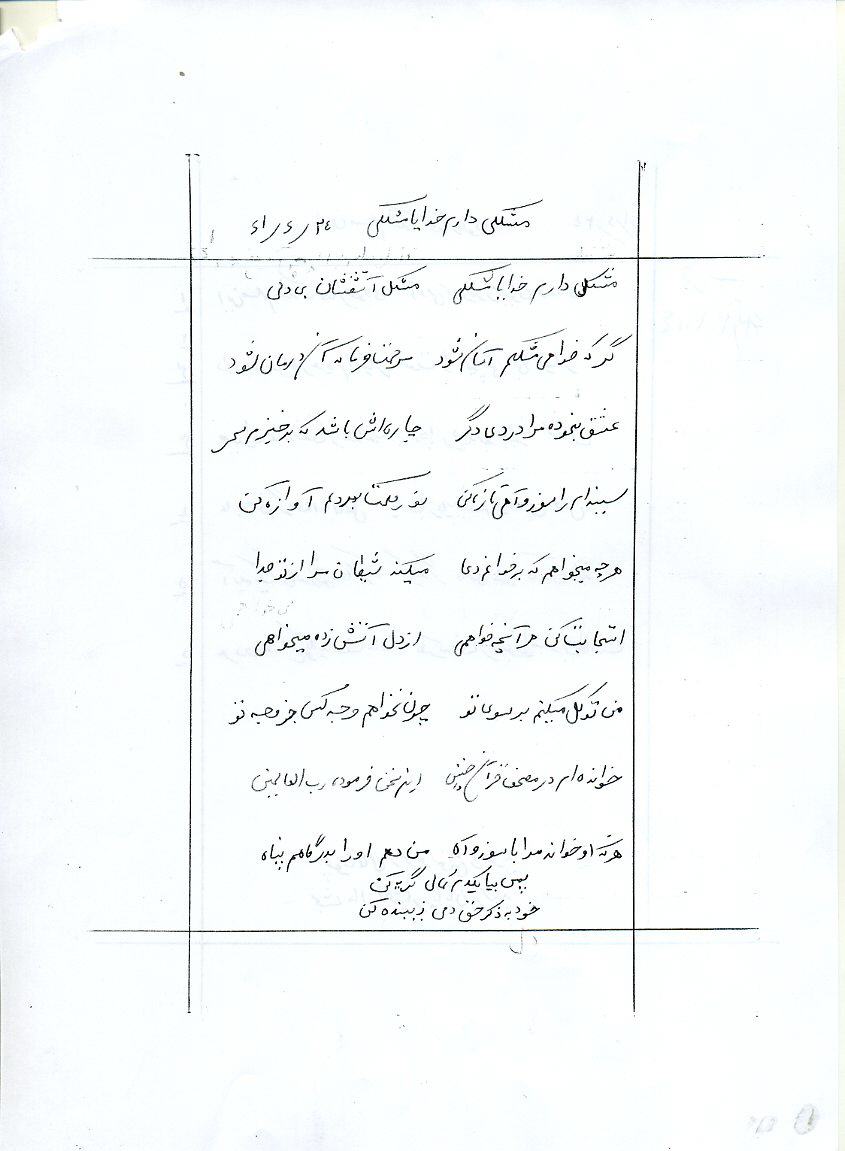 مشکلی دارم خدایا مشکلی ۲۴ ر ۶ ر ۸۱
مشکلی دارم خدایا مشکلی مشکل آتشفشان بی دلی
گر که خواهی مشکلم آسان شود آن درمان شود
عشق بنموده مرا دردی دگر چاره اش باشد که برخیزم سحر
سینه ام را سوز و آهی تازه کن نور در قلبم آوازه کن
هر چه میخواهم که برخوانم دعا میکند شیطان مرا از تو جدا
استجابت کن هر آنچه خواهمی از دل آتش زده میخواهمی
من توکل میکنم بر سوی تو چون نخواهم وجه کس جز وجه تو
خوانده ام در مصحف قرآن چنین این سخن فرموده رب العالمین
هر که او خواند مرا با سوز و آه من دهم او را بدرگاهم پناه
پس بیا یکدم کمالی گریه کن
خود به ذکر حق دمی زیبنده کن